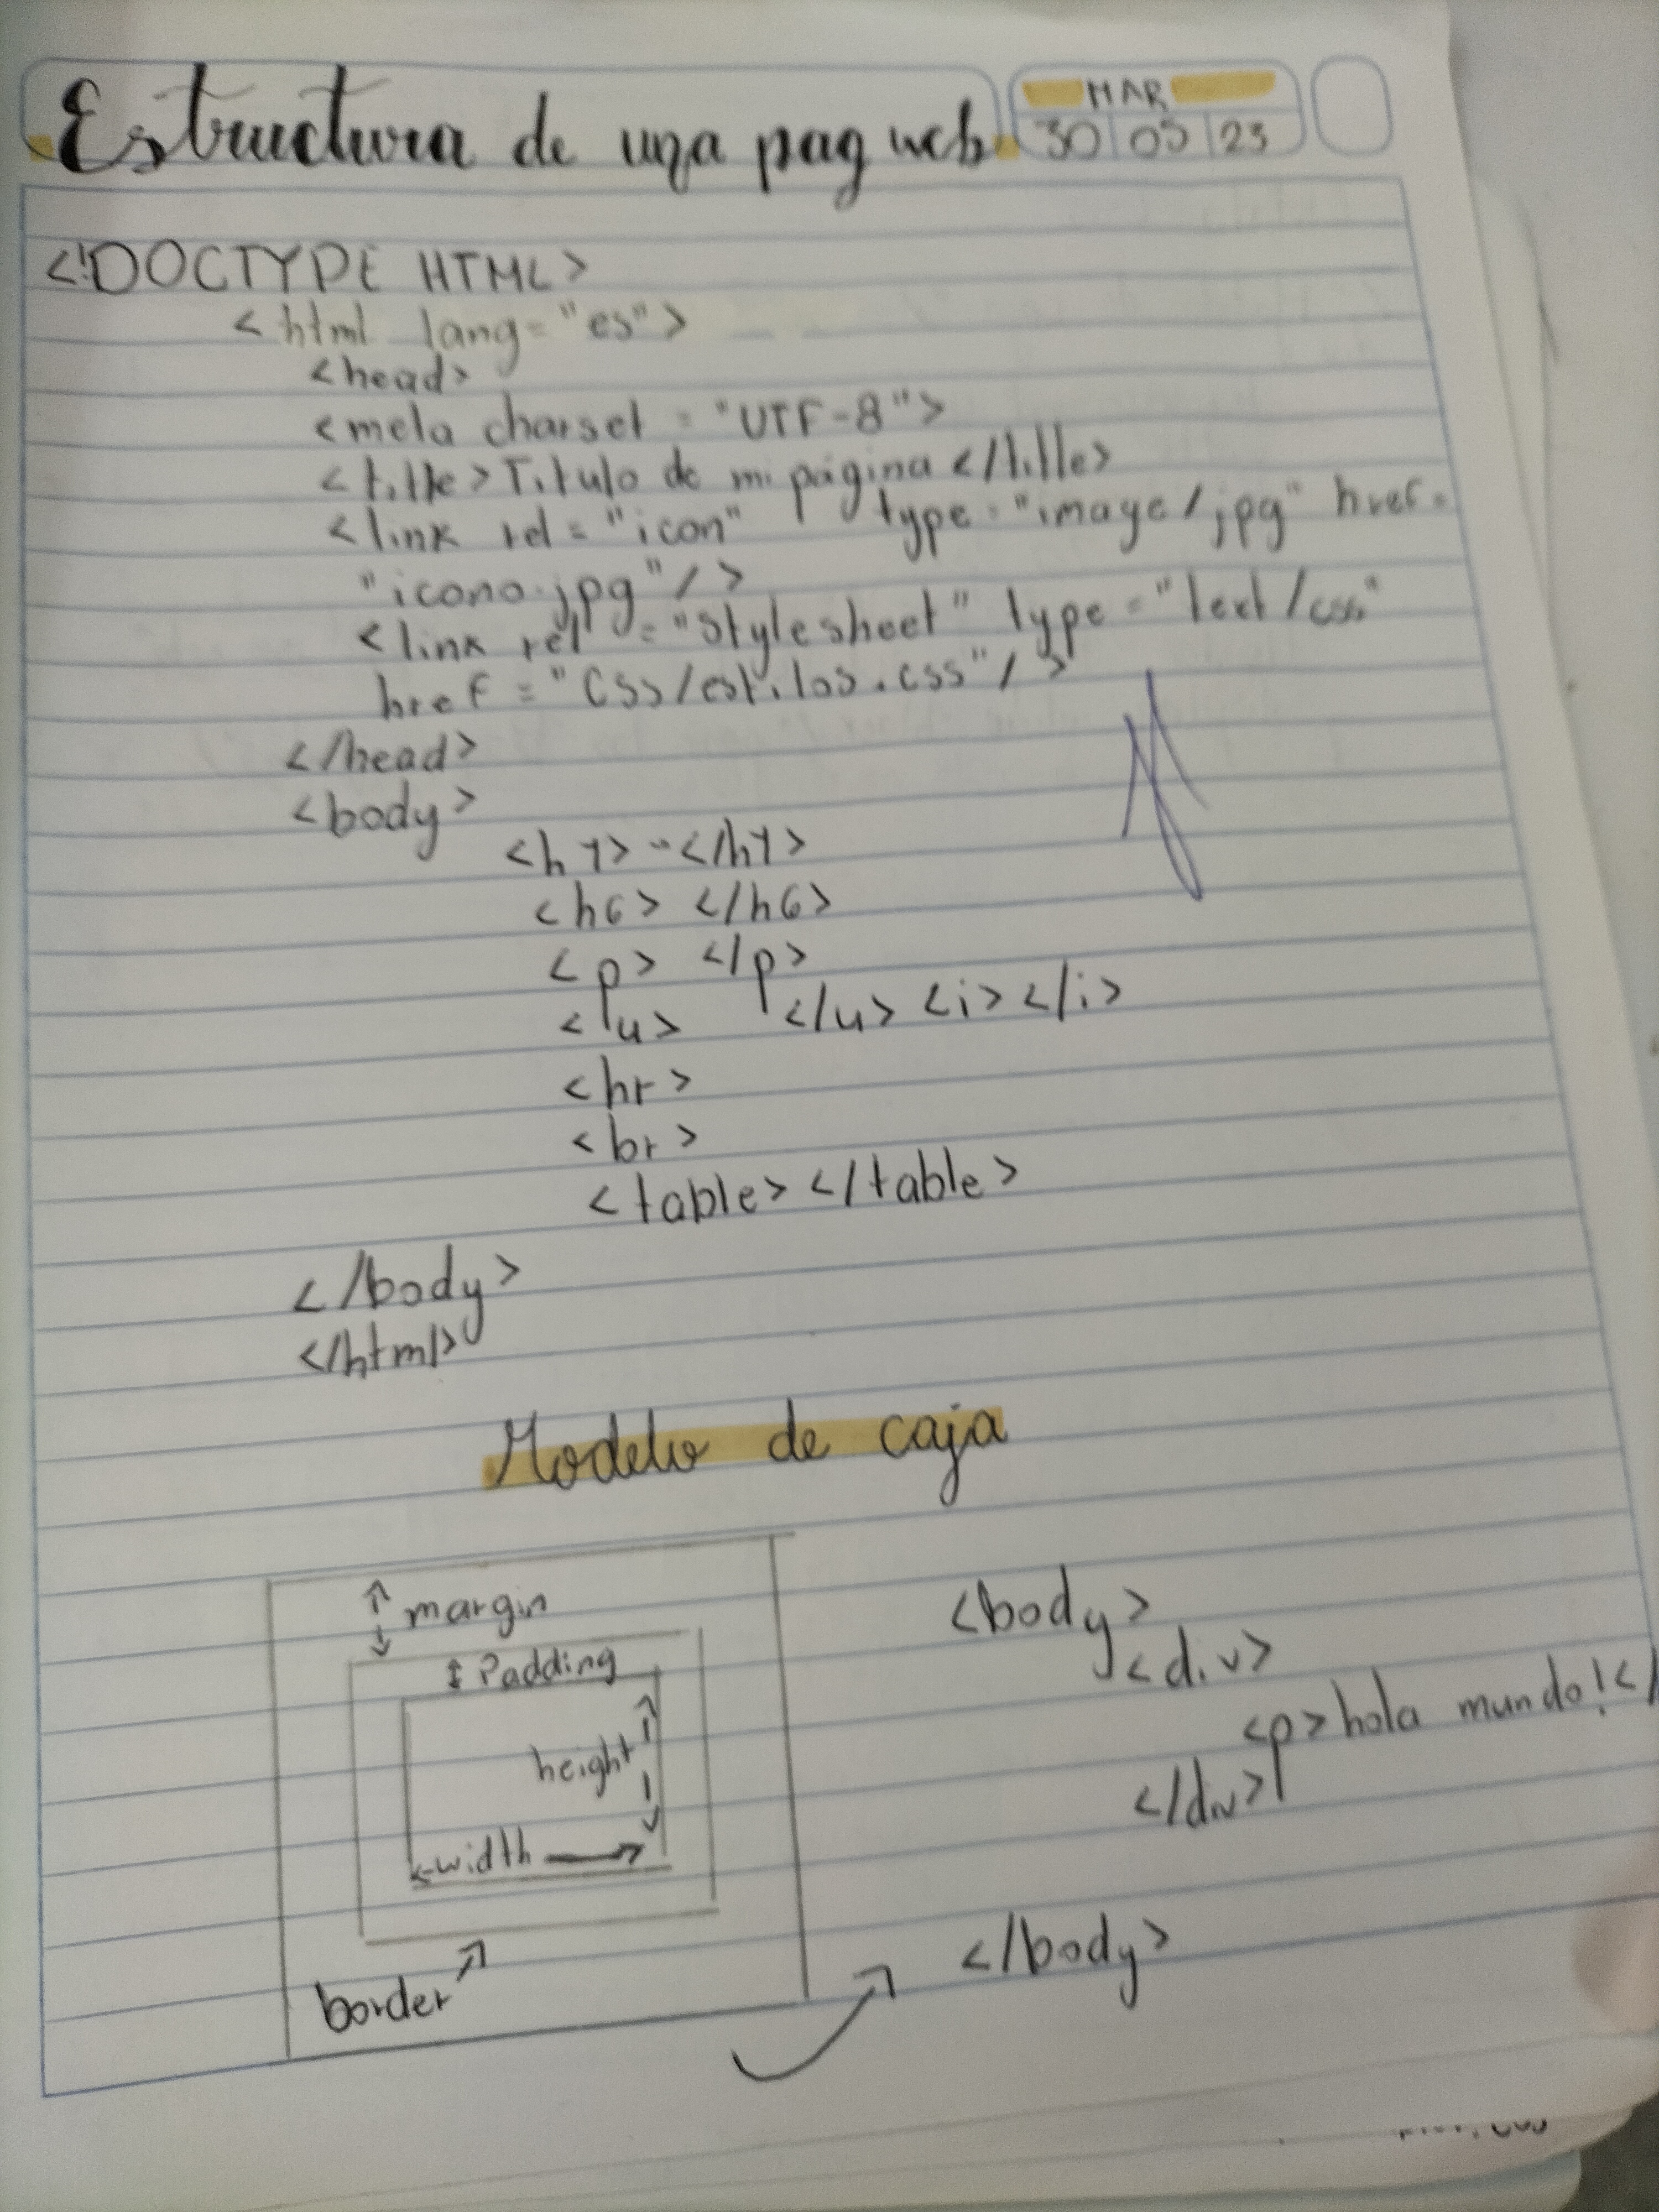 Estructura de una pag web.
MAR
30 05 23
<!DOCTYPE HTML>
<html lang="es">
<head>
<meta charset = "UTF-8">
<title>Titulo de mi página</title>
<link rel = "icon" type="image/jpg" href=
"icono.jpg"/>
<link rel = "stylesheet" type = "text/css"
href = "Css/estilos.css"/>
</head>
<body>
<h1> </h1>
<h6> </h6>
<p> </p>
<u> </u> <i></i>
<hr>
<br>
<table></table>
</body>
</html>
Modelo de caja
margin
Padding
height
width
border
<body>
<div>
<p>hola mundo!</
</div>
</body>